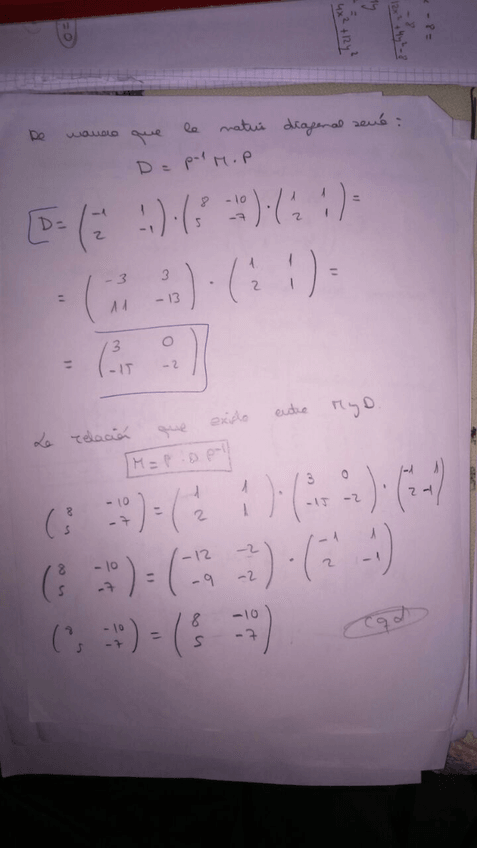 De manera que la matriz diagonal será:
D = P⁻¹ M · P
D = (-1 1; 2 -1) · (8 -10; 5 -7) · (1 1; 2 1) =
= (-3 3; 11 -13) · (1 1; 2 1) =
= (3 0; -15 -2)
La relación que existe entre M y D.
M = P · D · P⁻¹
(8 -10; 5 -7) = (1 1; 2 1) · (3 0; -15 -2) · (-1 1; 2 -1)
(8 -10; 5 -7) = (-12 -2; -9 -2) · (-1 1; 2 -1)
(8 -10; 5 -7) = (8 -10; 5 -7)
cqd